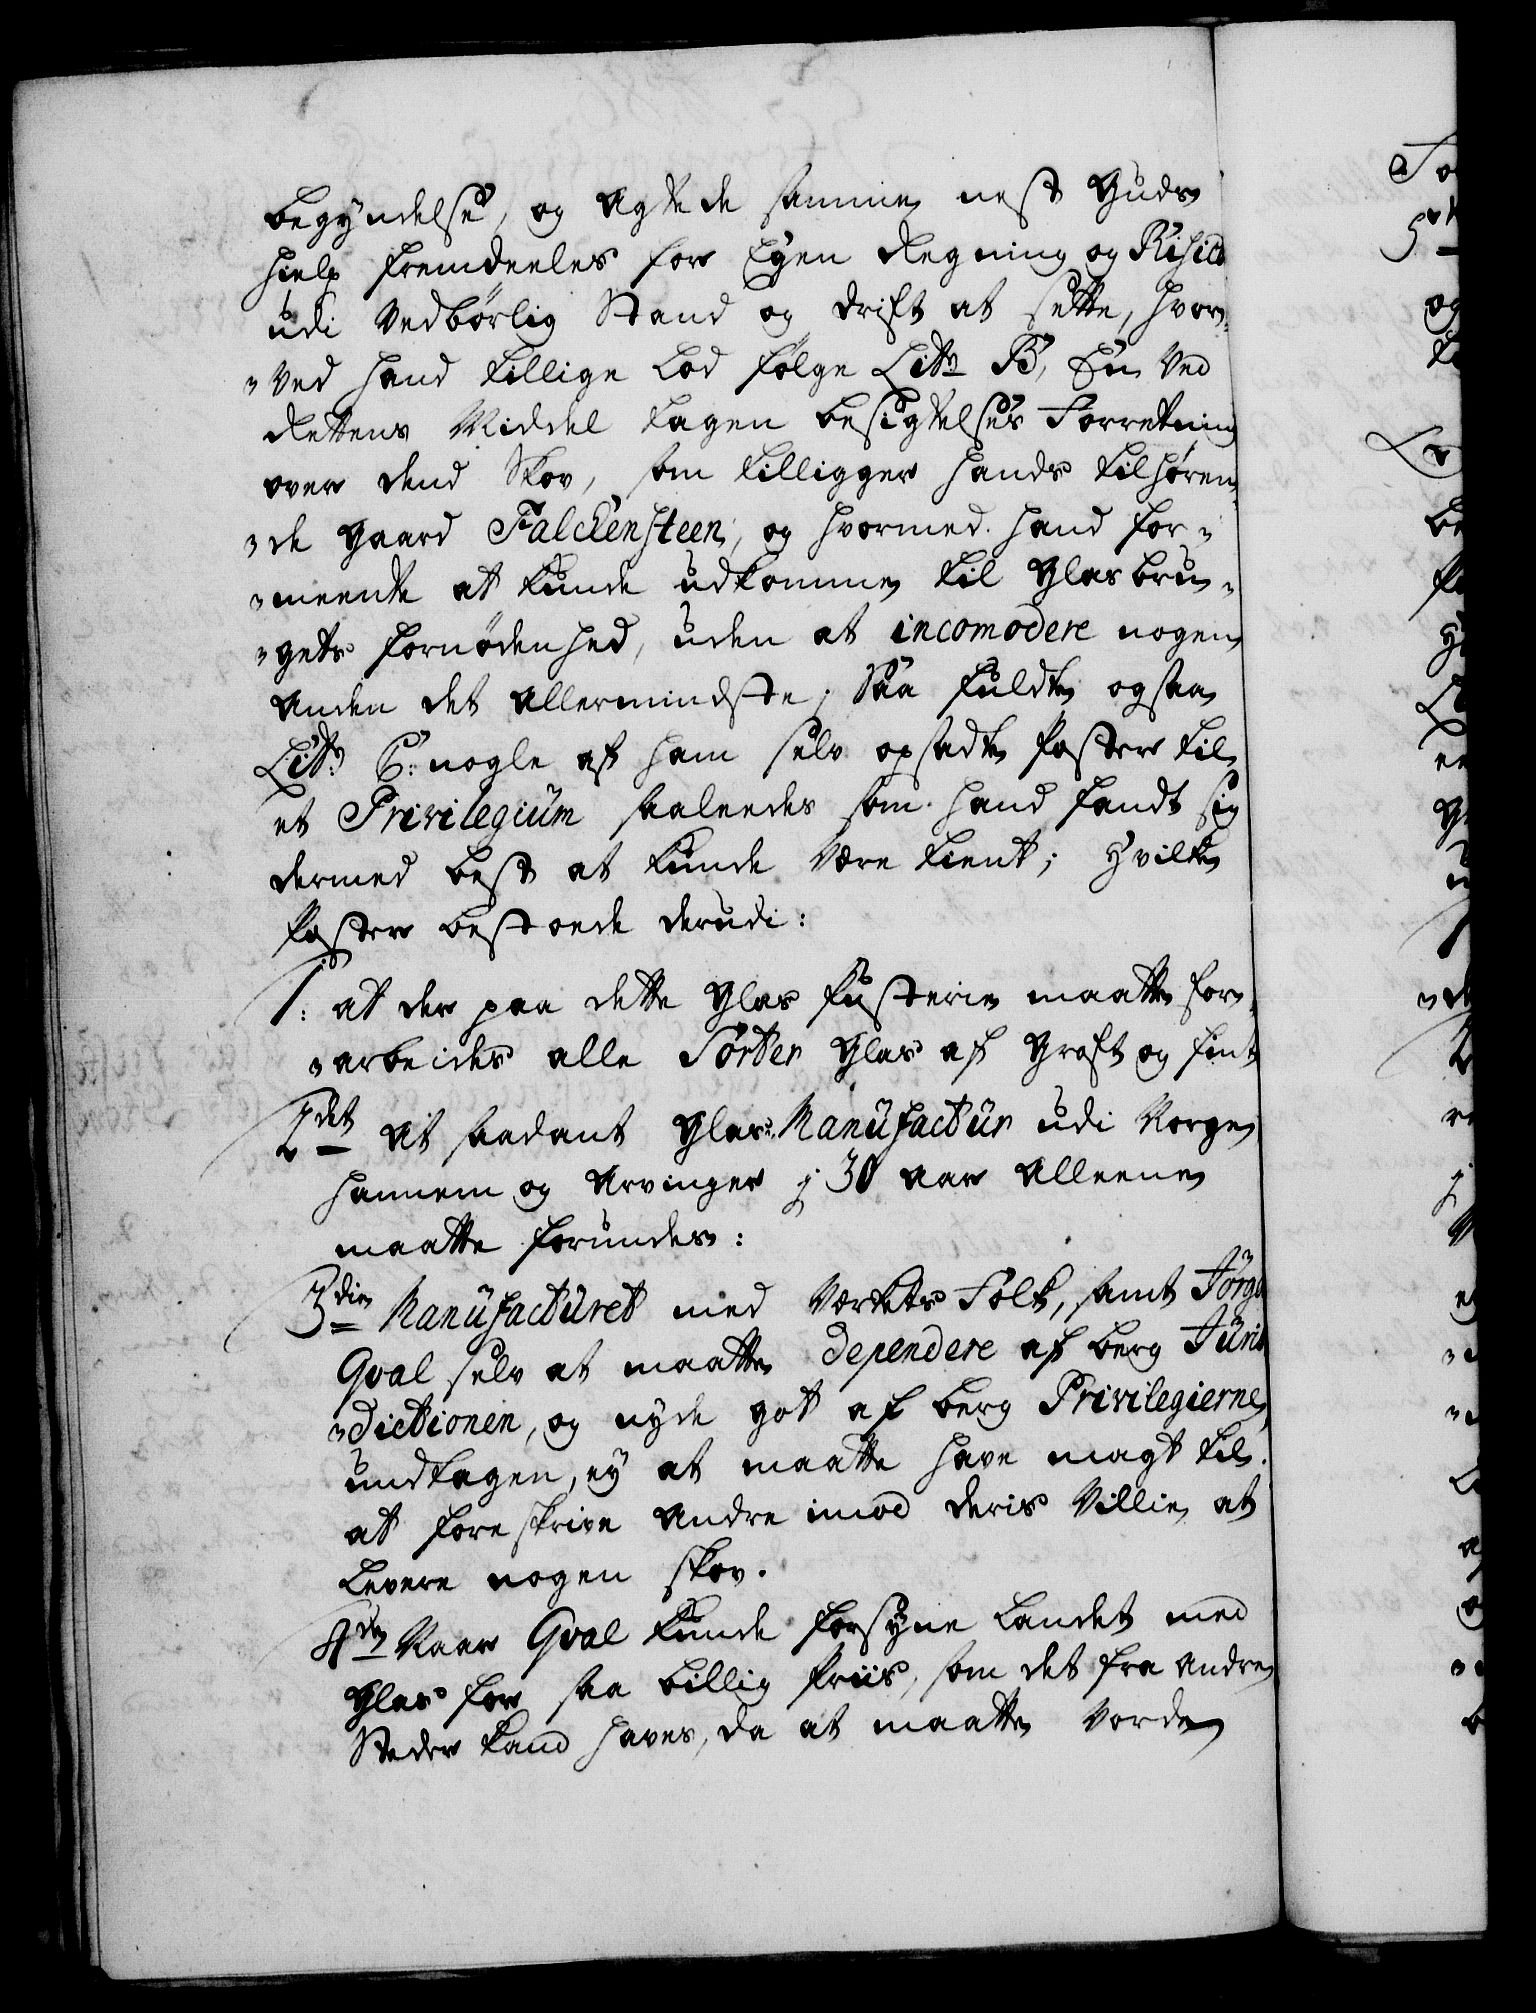 begyndelse, og agtede samme nest Guds
hielp fremdeeles for Egen Regning og Risico
udi Vedbørlig Stand og drift at sette, hvor-
-ved hand tillige Lod følge Litr: B, En Ved
Rettens Middel tagen besigtelses Forretning
over dend Skov, som tilligger hands tilhøren-
-de gaard Falckensteen, og hvormed hand for-
-meente at kunde udkomme til Glas bru-
-gets fornødenhed, uden at incomodere nogen
anden det allermindste; Saa fuldte ogsaa
Litr: C: nogle af ham selv opsadte Poster til
et Privilegium saaleedes som hand fandt sig
dermed best at kunde være tient; Hvilke
Poster bestoede derudi:
1: at der paa dette Glas Pusterie maatte for-
-arbeides alle Sorter Glas af Groft og fint
2det at saadant Glas-Manufactur udi Norge
hannem og Arvinger i 30 aar alleene
maatte forundes:
3die Manufacturet med Verkets Folk, samt Jørgen
Qval selv at maatte dependere af berg Juris
-dictionen, og nyde got af berg Privilegierne,
undtagen, ey at maatte have magt til
at foreskrive andre imod deris Villie at
Levere nogen skov.
4de Naar Qval kunde forsyne Landet med
Glas for saa billig Priis, som det fra andre
Steder kand haves, da at maatte vorde